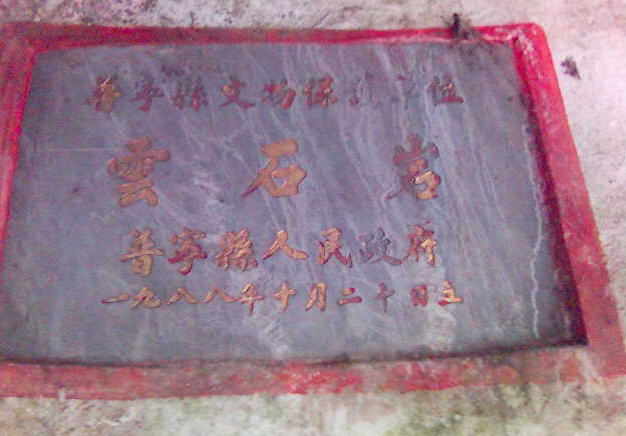 普寧縣文物保護单位
雲石岩
普寧縣人民政府
一九八八年十月二十日立